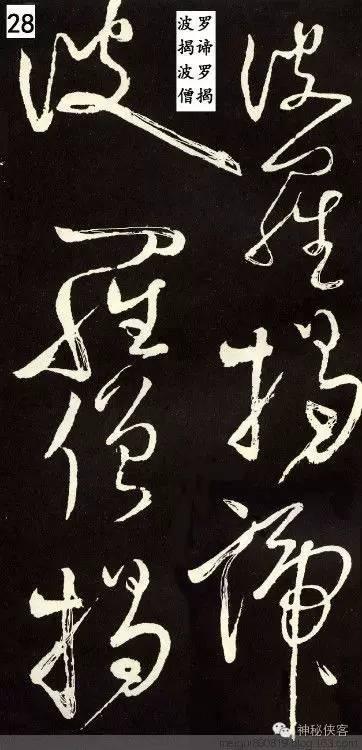 28
波罗
揭谛
波罗
僧揭
波羅揭諦
波羅僧揭
神秘侠客